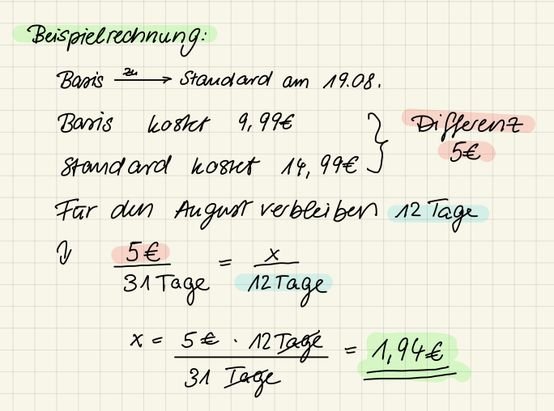 Beispielrechnung:
Basis zu → Standard am 19.08.
Basis kostet 9,99€
Standard kostet 14,99€ } Differenz 5€
Für den August verbleiben 12 Tage
↓ 5€ / 31 Tage = x / 12 Tage
x = 5€ · 12 Tage / 31 Tage = 1,94€